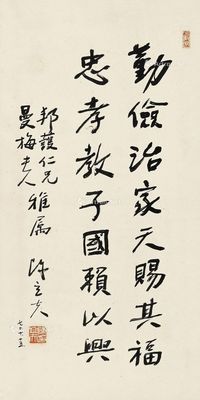 勤儉治家天賜其福
忠孝教子國賴以興
邦護仁兄
曼梅夫人雅屬
陳立夫